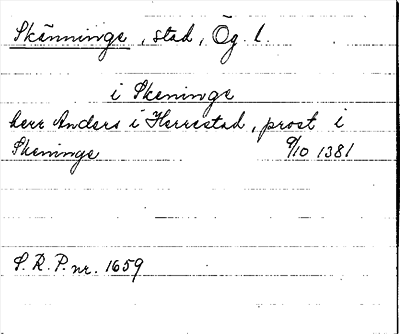 Skänninge, stad, Ög. l.
i Skeninge
herr Anders i Herrestad, prost i
Skeninge 9/10 1381
S. R. P. nr. 1659